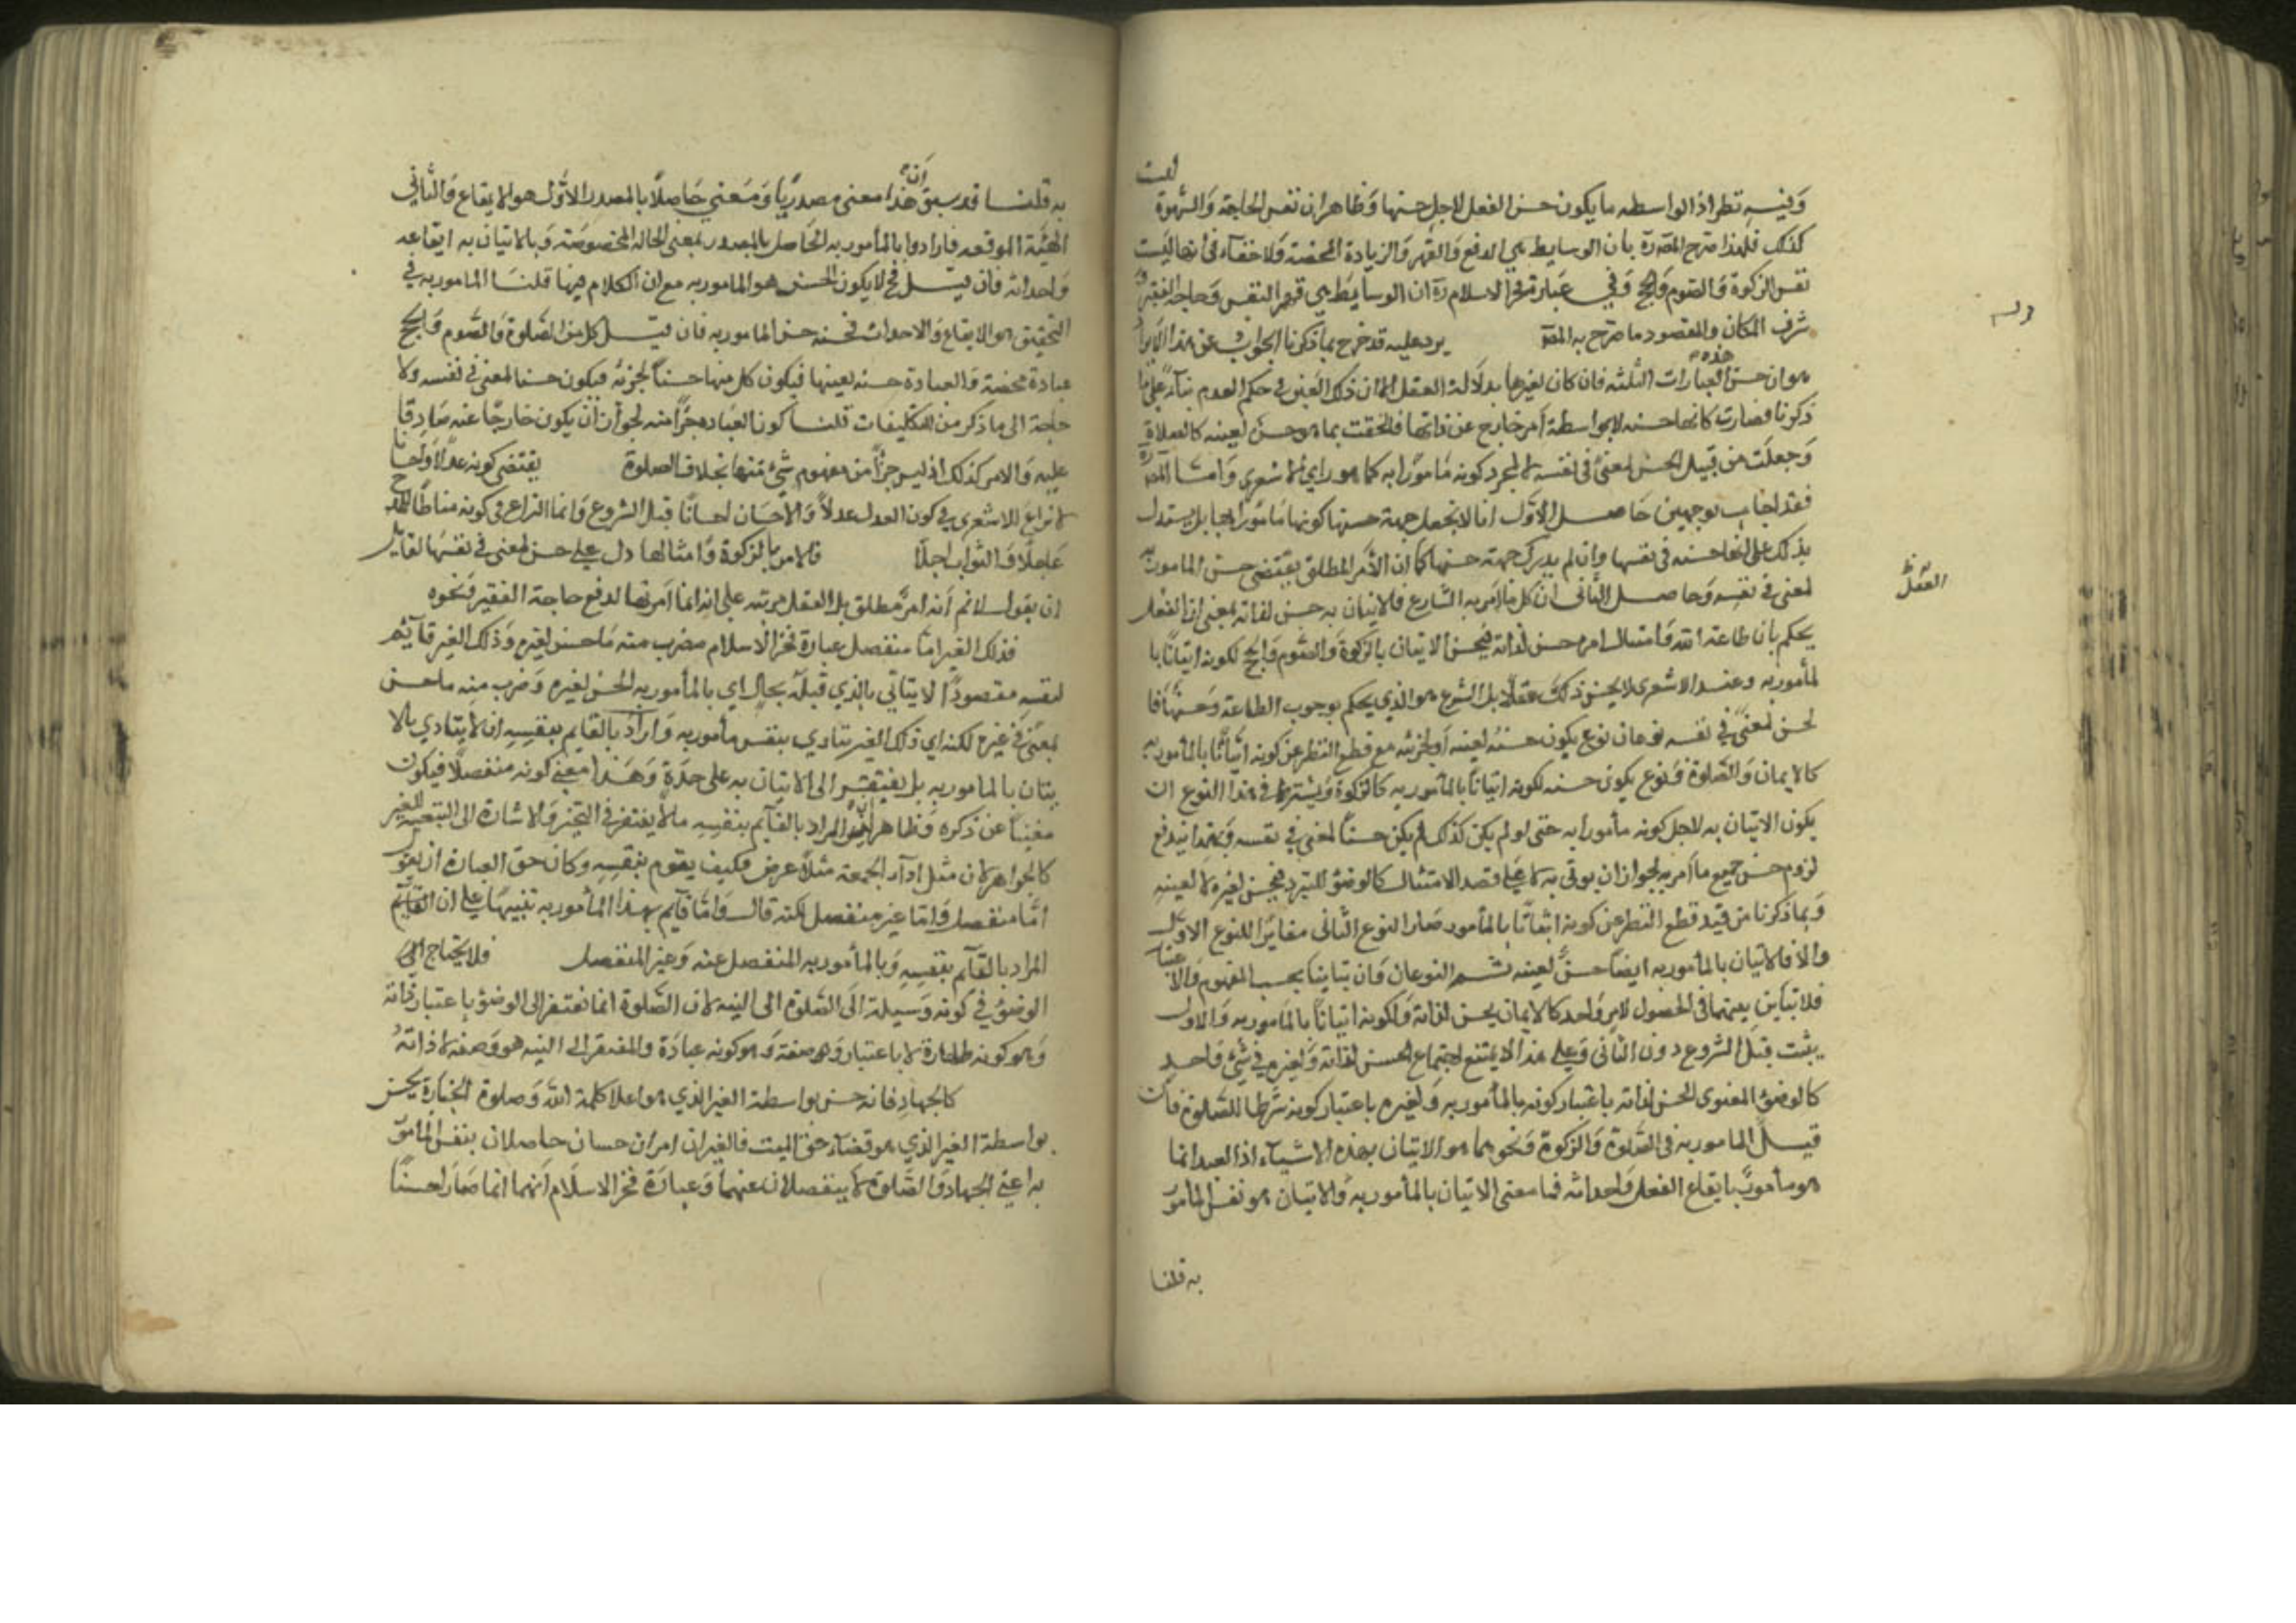 وفيه نظر اذ الواسطه ما يكون حسن الفعل لاجل حسنها وظاهر ان نفس الحاجة والشهوة ليست
كذلك فلهذا صرح المصره بان الوسايط هي الدفع والقهر والزيادة المخصة ولا خفاء في انها ليست
نفس الزكوة والصوم والحج وفي عبارة فخر الاسلام ره ان الوسايط هي قهر النفس وحاجة الفقير و
شرف المكان والمقصود ما صرح به المصه يرد عليه قد خرج بما ذكرنا الجواب عن هذا الايراد
هو ان حسن هذه العبارات الثلثه فان كان لغيرها بدلالة العقل الا ان ذلك الغير في حكم العدم بناء على ما
ذكرنا فصارت كانها حسنه لا بواسطة امر خارج عن ذاتها فالحقت بما هو حسن لعينه كالصلاة
وجعلت من قبيل الحسن لمعنى في نفسه لا لمجرد كونه مامورا به كما هو راي الاشعري وامثا المصره
فقد اجاب بوجهين حاصل الاول انا لا نجعل جهة حسنها كونها مامورا بها بل يستدل
بذلك على انها حسنه في نفسها وان لم يدرك جهة حسنها كما ان الامر المطلق يقتضي حسن المامور به
لمعنى في نفسه وحاصل الثاني ان كل ما امر به الشارع فالاتيان به حسن لذاته بمعنى ان العقل
يحكم بان طاعة الله وامتثال امره حسن لذاته فيحسن الاتيان بالزكوة والصوم والحج لكونه اتيانا با
لمأمور به وعند الاشعري لا يحسن ذلك عقلا بل الشرع هو الذي يحكم بوجوب الطاعة وحسنها فا
لحسن لمعنى في نفسه نوعان نوع يكون حسنه لعينه او لجزئه مع قطع النظر عن كونه اتيانا بالمأمور به
كالايمان والصلوة ونوع يكون حسنه لكونه اتيانا بالمأمور به كالزكوة ويشترط في هذا النوع ان
يكون الاتيان به لاجل كونه مأمورا به حتى لو لم يكن كذلك لم يكن حسنا لمعنى في نفسه وبهذا يندفع
لزوم حسن جميع ما امر به لجواز ان يوتى به لا على قصد الامتثال كالوضؤ للتبرد فيحسن لغيره لا لعينه
وبما ذكرنا من قيد قطع النظر عن كونه اتيانا بالمأمور صار النوع الثاني مغايرا للنوع الاول
والا فالاتيان بالمأمور به ايضا حسن لعينه ثم النوعان وان تباينا بحسب المفهوم والاعتبار
فلا تباين بينهما في الحصول لامر واحد كالايمان يحسن لذاته ولكونه اتيانا بالمأمور به والاول
يثبت قبل الشروع دون الثاني وعلى هذا لا يمتنع اجتماع الحسن لذاته ولغيره في شئ واحد
كالوضؤ المنوى الحسن لذاته باعتبار كونه بالمأمور به ولغيره باعتبار كونه شرطا للصلوة فان
قيل المامور به في الصلوة والزكوة ونحوهما هو الاتيان بهذه الاشياء اذ العبد انما
هو مأمور بايقاع الفعل واحداثه فما معنى الاتيان بالمأمور به والاتيان هو نفس المأمور
به قلنا
العقل
به قلنا قد سبق ان هذا معنى مصدريا ومعنى حاصلا بالمصدر الاول هو الايقاع والثاني
الهيئة الموقعه فارادوا بالمأمور به الحاصل بالمصدر بمعنى الحاله المخصوصه وبالاتيان به ايقاعه
واحداثه فان قيل فح لا يكون الحسن هو المامور به مع ان الكلام فيها قلنا المامور به في
التحقيق هو الايقاع والاحداث فحسنه حسن المامور به فان قيل كل من الصلوة والصوم والحج
عبادة محضة والعبادة حسنه لعينها فيكون كل منها حسنا لجزئه فيكون حسنا لمعنى في نفسه ولا
حاجة الى ما ذكر من التكليفات قلنا كونا العباده جزا منه لجواز ان يكون خارجا عنه صادقا
عليه والامر كذلك اذ ليس جزأ من مفهوم شئ منها بخلاف الصلوة يقتضي كونه عدلا واحسانا
لا نزاع للاشعري في كون العدل عدلا والاحسان احسانا قبل الشروع وانما النزاع في كونه مناطا للمدح
عاجلا والثواب اجلا فالامر بالزكوة وامثالها دل على حسن لمعنى في نفسها لقايل
ان يقول لا نم انه امر مطلق بل العقل قرينة على انه انما امر بها لدفع حاجة الفقير ونحوه
فذلك الغير امّا منفصل عبارة فخر الاسلام مضرب منه ما حسن لغيره وذلك الغير قآئم
لنفسه مقصودا لا يتاتي بالذي قبله بحال اي بالمأمور به الحسن لغيره وضرب منه ما حسن
لمعنى في غيره لكنه اي ذلك الغير يتادي بنفس مأمور به واراد بالقايم بنفسه انه لا يتادي بالا
تيان بالمامور به بل يفتقر الى الاتيان به على حدة وهذا معنى كونه منفصلا فيكون
مغنيا عن ذكره وظاهر انه ليس المراد بالقآيم بنفسه ما لا يفتقر في التحيز والاشارة الى التبعيه للغير
كالجواهر لان مثل ادآء الجمعة مثلا عرض فكيف يقوم بنفسه وكان حق العبارة ان يقول
امّا منفصل وامّا غير منفصل لكنه قال وامّا قآيم بهذا المأمور به تنبيها على ان القآيم
المراد بالقآيم بنفسه وبالمأمور به المنفصل عنه وغير المنفصل فلا يحتاج الى
الوضؤ في كونه وسيلة الى الصلوة الى النيه لان الصلوة انما تفتقر الى الوضؤ باعتبار ذاته
وهو كونه طهارة لا باعتبار وصفه وهو كونه عبادة والمفتقر الى النيه هو وصفه لا ذاته
كالجهاد فانه حسن بواسطة الغير الذي هو اعلا كلمة الله وصلوة الجنازة يحسن
بواسطة الغير الذي هو قضآء حق الميت فالغيران امران حسنان حاصلان بنفس المامور
به اعني الجهاد والصلوة لا ينفصلان عنهما وعبارة فخر الاسلام انهما انما صارا حسنا